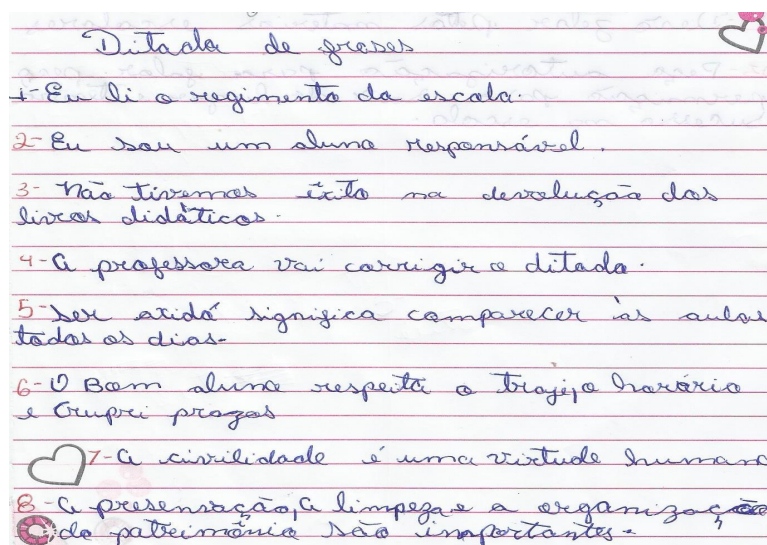 Ditado de frases
1- Eu li o regimento da escola.
2- Eu sou um aluno responsável.
3- Não tivemos êxito na devolução dos
livros didáticos.
4- A professora vai corrigir o ditado.
5- Ser acidó significa comparecer às aulas
todos os dias.
6- O Bom aluno respeita o trajijo horário
e Crupri prazos
7- A civilidade é uma virtude humana
8- A presensação, A limpeza e a organização
do patrimônio são importantes.